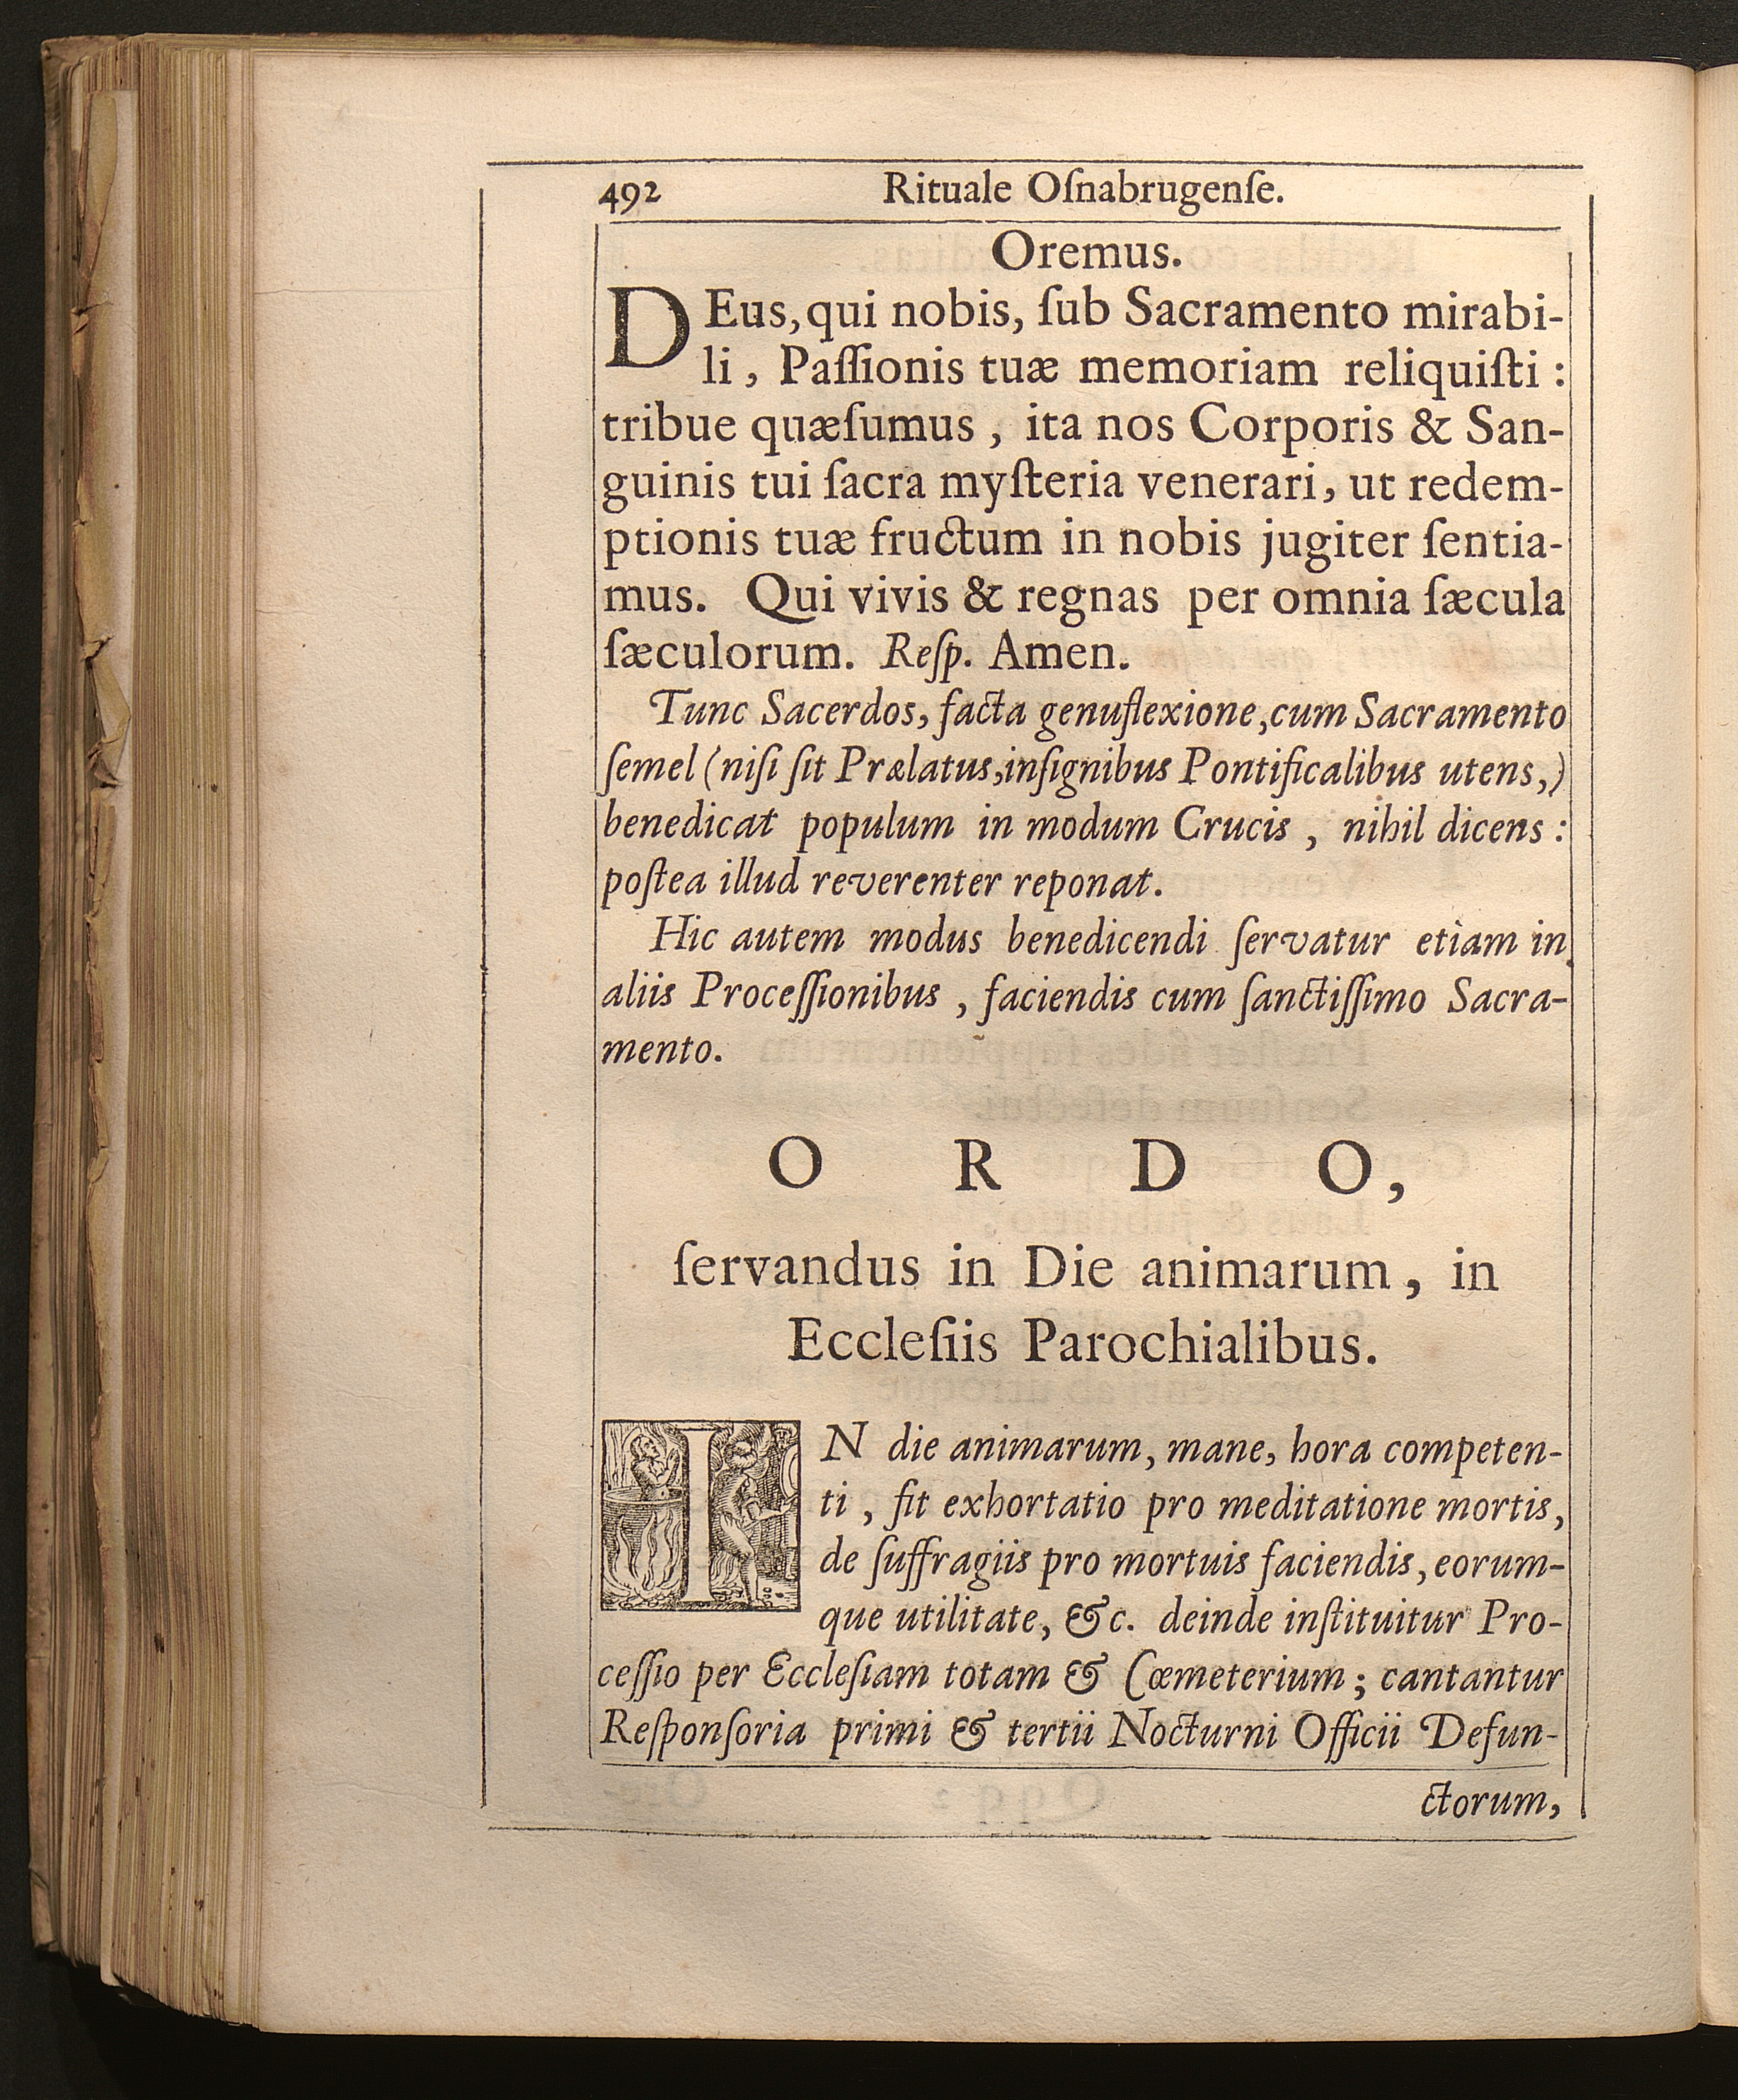 492 Rituale Oſnabrugenſe.
Oremus.
DEus, qui nobis, ſub Sacramento mirabi-
li, Paſſionis tuæ memoriam reliquiſti:
tribue quæſumus, ita nos Corporis & San-
guinis tui ſacra myſteria venerari, ut redem-
ptionis tuæ fructum in nobis jugiter ſentia-
mus. Qui vivis & regnas per omnia ſæcula
ſæculorum. Reſp. Amen.
Tunc Sacerdos, facta genuflexione, cum Sacramento
ſemel (niſi ſit Prælatus, inſignibus Pontificalibus utens,)
benedicat populum in modum Crucis, nihil dicens:
poſtea illud reverenter reponat.
Hic autem modus benedicendi ſervatur etiam in
aliis Proceſſionibus, faciendis cum ſanctiſſimo Sacra-
mento.
O R D O,
ſervandus in Die animarum, in
Eccleſiis Parochialibus.
IN die animarum, mane, hora competen-
ti, fit exhortatio pro meditatione mortis,
de ſuffragiis pro mortuis faciendis, eorum-
que utilitate, &c. deinde inſtituitur Pro-
ceſſio per Eccleſiam totam & Cœmeterium; cantantur
Reſponſoria primi & tertii Nocturni Officii Defun-
ctorum,